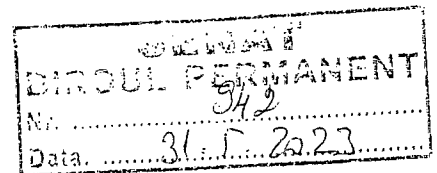 SENAT
BIROUL PERMANENT
Nr. ........ 342 ........
Data. ........ 31. 5. 2023 ........